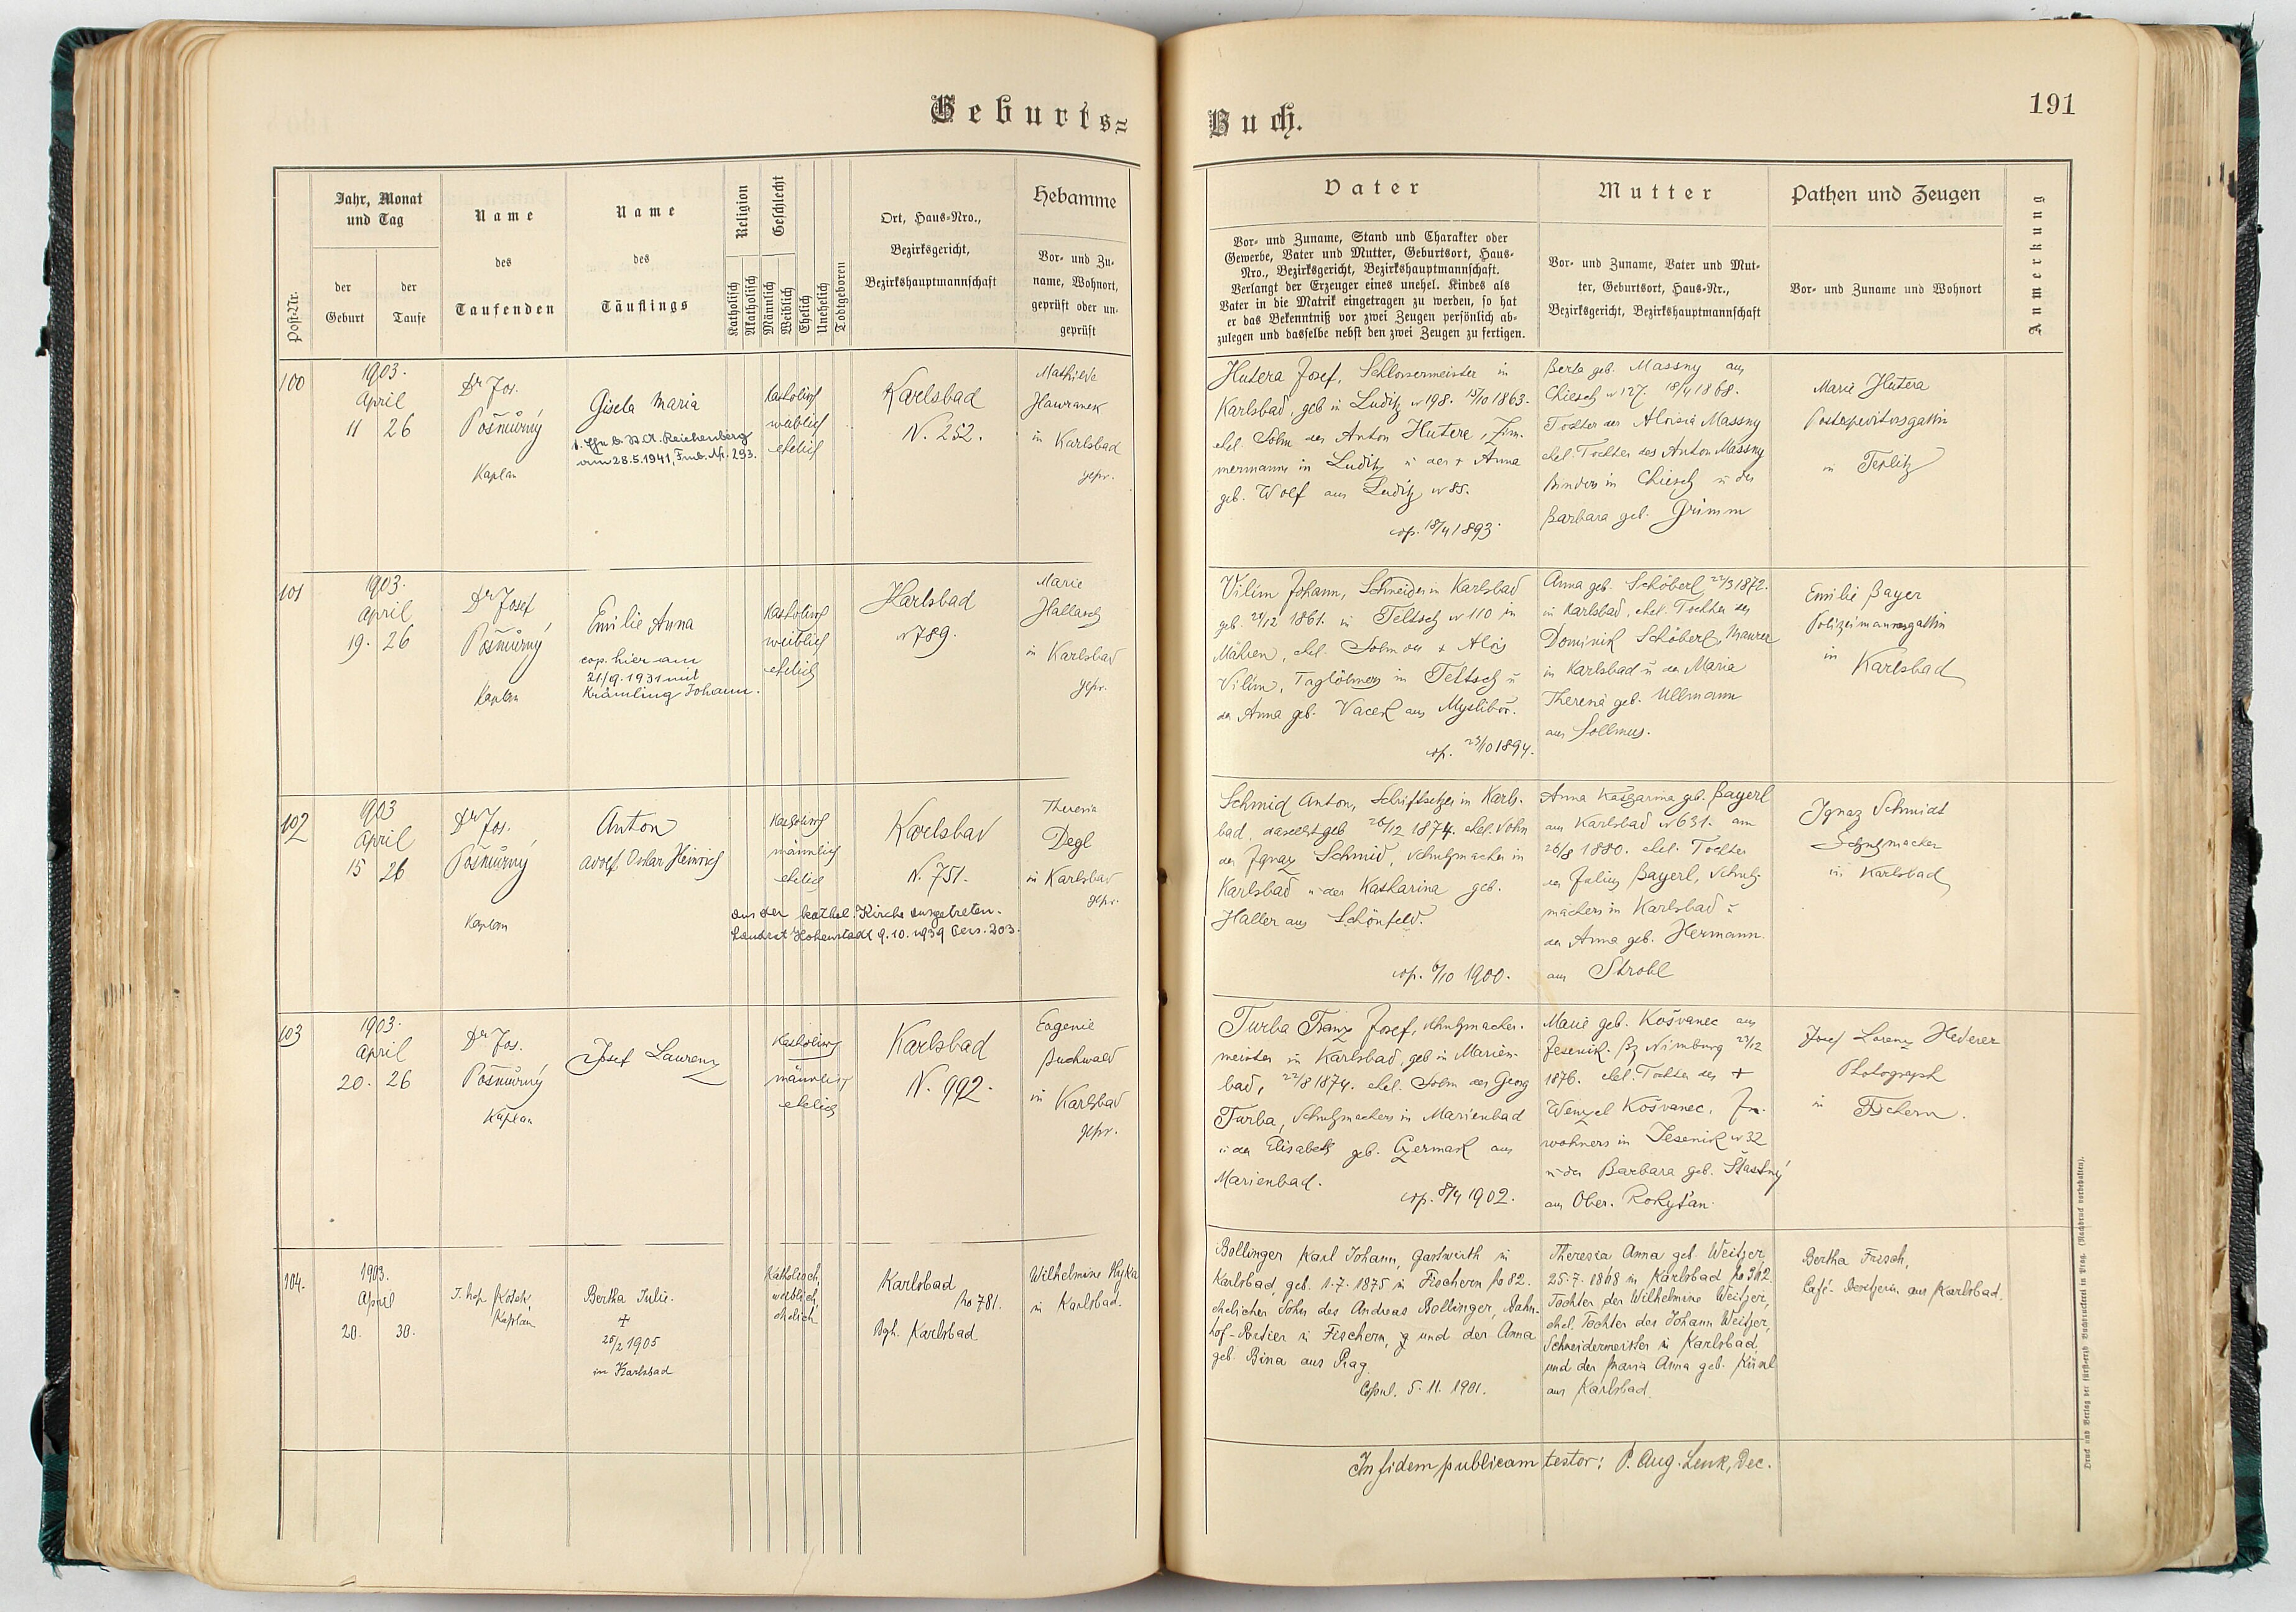 Geburts=
Post-Nr.
Jahr, Monat
und Tag
der
Geburt
der
Taufe
Name
des
Taufenden
Name
des
Täuflings
Religion
Katholisch
Akatholisch
Geschlecht
Männlich
Weiblich
Ehelich
Unehelich
Todtgeboren
Ort, Haus-Nro.,
Bezirksgericht,
Bezirkshauptmannschaft
Hebamme
Vor- und Zu-
name, Wohnort,
geprüft oder un-
geprüft
100
1903.
April
11 26
Dr Jos.
Pošmůrný
Kaplan
Gisela Maria
am 28.5.1941, Fmb. Nr. 293.
Katholisch
weiblich
ehelich
Karlsbad
N. 252.
Mathilde
Hawranek
in Karlsbad
gepr.
101
1903.
April
19. 26
Dr Josef
Pošmůrný
Kaplan
Emilie Anna
cop. hier am
21/9.1931 mit
Krämling Johann.
Katholisch
weiblich
ehelich
Karlsbad
N 789.
Marie
Hallasch
in Karlsbad
gepr.
102
1903
April
15 26
Dr Jos.
Pošmůrný
Kaplan
Anton
Adolf Oskar Heinrich
Katholisch
männlich
ehelich
aus der kathol. Kirche ausgetreten.
Landrat Hohenstadt 9.10.1939 203.
Karlsbad
N. 751.
Theresia
Degl
in Karlsbad
gepr.
103
1903.
April
20. 26
Dr Jos.
Pošmůrný
Kaplan
Josef Laurenz
Katholisch
männlich
ehelich
Karlsbad
N. 992.
Eugenie
Buchwald
in Karlsbad
gepr.
104.
1903.
April
20. 30.
Kaplan
Bertha Julie.
+
25/2 1905
in Karlsbad
Katholisch,
weiblich,
ehelich
Karlsbad
No 781.
Bgh. Karlsbad
Wilhelmine Hyka
in Karlsbad.
Buch.
191
Vater
Vor- und Zuname, Stand und Charakter oder
Gewerbe, Vater und Mutter, Geburtsort, Haus-
Nro., Bezirksgericht, Bezirkshauptmannschaft.
Verlangt der Erzeuger eines unehel. Kindes als
Vater in die Matrik eingetragen zu werden, so hat
er das Bekenntniß vor zwei Zeugen persönlich ab-
zulegen und dasselbe nebst den zwei Zeugen zu fertigen.
Mutter
Vor- und Zuname, Vater und Mut-
ter, Geburtsort, Haus-Nr.,
Bezirksgericht, Bezirkshauptmannschaft
Pathen und Zeugen
Vor- und Zuname und Wohnort
Anmerkung
Hutera Josef, Schlossermeister in
Karlsbad, geb in Luditz N 198. 15/10 1863.
ehel. Sohn des Anton Hutera, Zim-
mermanns in Luditz u der + Anna
geb. Wolf aus Luditz N 85.
cop. 18/4 1893.
Berta geb. Massny aus
Chiesch N 127. 18/4 1868.
Tochter der Aloisia Massny
ehel. Tochter des Anton Massny
Binders in Chiesch u der
Barbara geb. Grimm
Marie Hutera
Postexpeditorsgattin
in Teplitz
Vilím Johann, Schneider in Karlsbad
geb. 24/12 1861. in Teltsch N 110 in
Mähren, ehel. Sohn des + Alois
Vilím, Taglöhners in Teltsch u
der Anna geb. Vacek aus Myslibor.
cop. 23/10 1894.
Anna geb. Schöberl, 22/3 1872.
in Karlsbad, ehel. Tochter des
Dominik Schöberl, Maurer
in Karlsbad u der Maria
Theresia geb. Ullmann
aus Sollmus.
Emilie Bayer
Polizeimannsgattin
in Karlsbad
Schmid Anton, Schriftsetzer in Karls-
bad, daselbst geb 26/12 1874. ehel. Sohn
des Ignaz Schmid, Schuhmacher in
Karlsbad u der Katharina geb.
Haller aus Schönfeld.
cop. 6/10 1900.
Anna Katharina geb. Bayerl
aus Karlsbad N 631. am
26/8 1880. ehel. Tochter
des Julius Bayerl, Schuh-
machers in Karlsbad u
der Anna geb. Hermann
aus Strobl
Ignaz Schmidt
Schuhmacher
in Karlsbad
Turba Franz Josef, Schuhmacher-
meister in Karlsbad, geb in Marien-
bad, 22/8 1874. ehel. Sohn des Georg
Turba, Schuhmachers in Marienbad
u der Elisabeth geb. Czermak aus
Marienbad.
cop. 8/4 1902.
Marie geb. Košvanec aus
Jesenik. Bz Nimburg 23/12
1876. ehel. Tochter des +
Wenzel Košvanec, In-
wohners in Jesenik N 32
u der Barbara geb. Šťastný
aus Ober-Rokytan.
Josef Lorenz Hederer
Photograph
in Fischern.
Bollinger Karl Johann, Gastwirth in
Karlsbad, geb. 1.7.1875 in Fischern No 82.
ehelicher Sohn des Andreas Bollinger, Bahn-
hof-Portier in Fischern, und der Anna
geb. Bina aus Prag.
Copul. 5.11.1901.
Theresia Anna geb. Weitzer
25.7.1868 in Karlsbad No 362.
Tochter der Wilhelmine Weitzer,
ehel. Tochter des Johann Weitzer,
Schneidermeister in Karlsbad
und der Maria Anna geb.
aus Karlsbad.
Bertha Frisch,
Café-Besitzerin aus Karlsbad.
In fidem publicam testor: P. Aug. Lenk, Dec.
Druck und Verlag der fürst-erzb. Buchdruckerei in Prag. (Nachdruck vorbehalten).